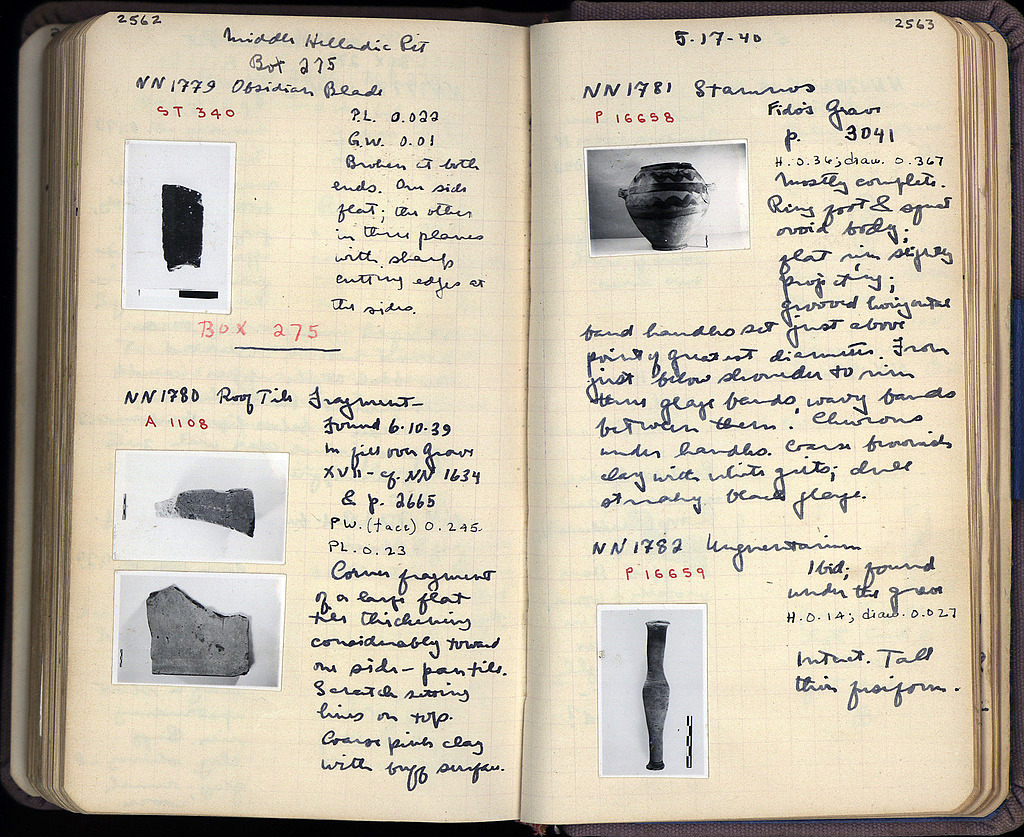 2562
Middle Helladic Pit
Box 275
NN1779 Obsidian Blade
ST 340
P.L. 0.022
G.W. 0.01
Broken at both
ends. One side
flat; the other
in three planes
with sharp
cutting edges at
the sides.
BOX 275
NN1780 Roof Tile Fragment
A 1108
Found 6.10.39
in fill over Grave
XVII - cf. NN 1634
& p. 2665
PW. (fact) 0.245
PL. 0.23
Corner fragment
of a large flat
tile thickening
considerably toward
one side - pan tile.
Scratch setting
lines on top.
Coarse pink clay
with buff surface.
2563
5.17.40
NN1781 Stamnos
P 16658
Fido's Grave
p. 3041
H. 0.36; diam. 0.367
Mostly complete.
Ring foot & squat
ovoid body;
flat rim slightly
projecting;
grooved horizontal
band handles set just above
point of greatest diameter. From
just below shoulder to rim
three glaze bands, wavy bands
between them. Chevrons
under handles. Coarse brownish
clay with white grits; dull
streaky black glaze.
NN1782 Unguentarium
P 16659
Ibid; found
under the grave
H. 0.14; diam. 0.027
Intact. Tall
thin fusiform.